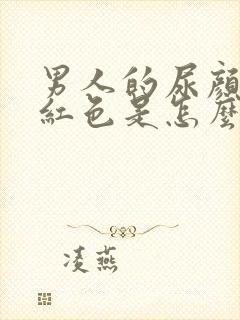 男人的尿顏
紅色是怎麼
凌燕